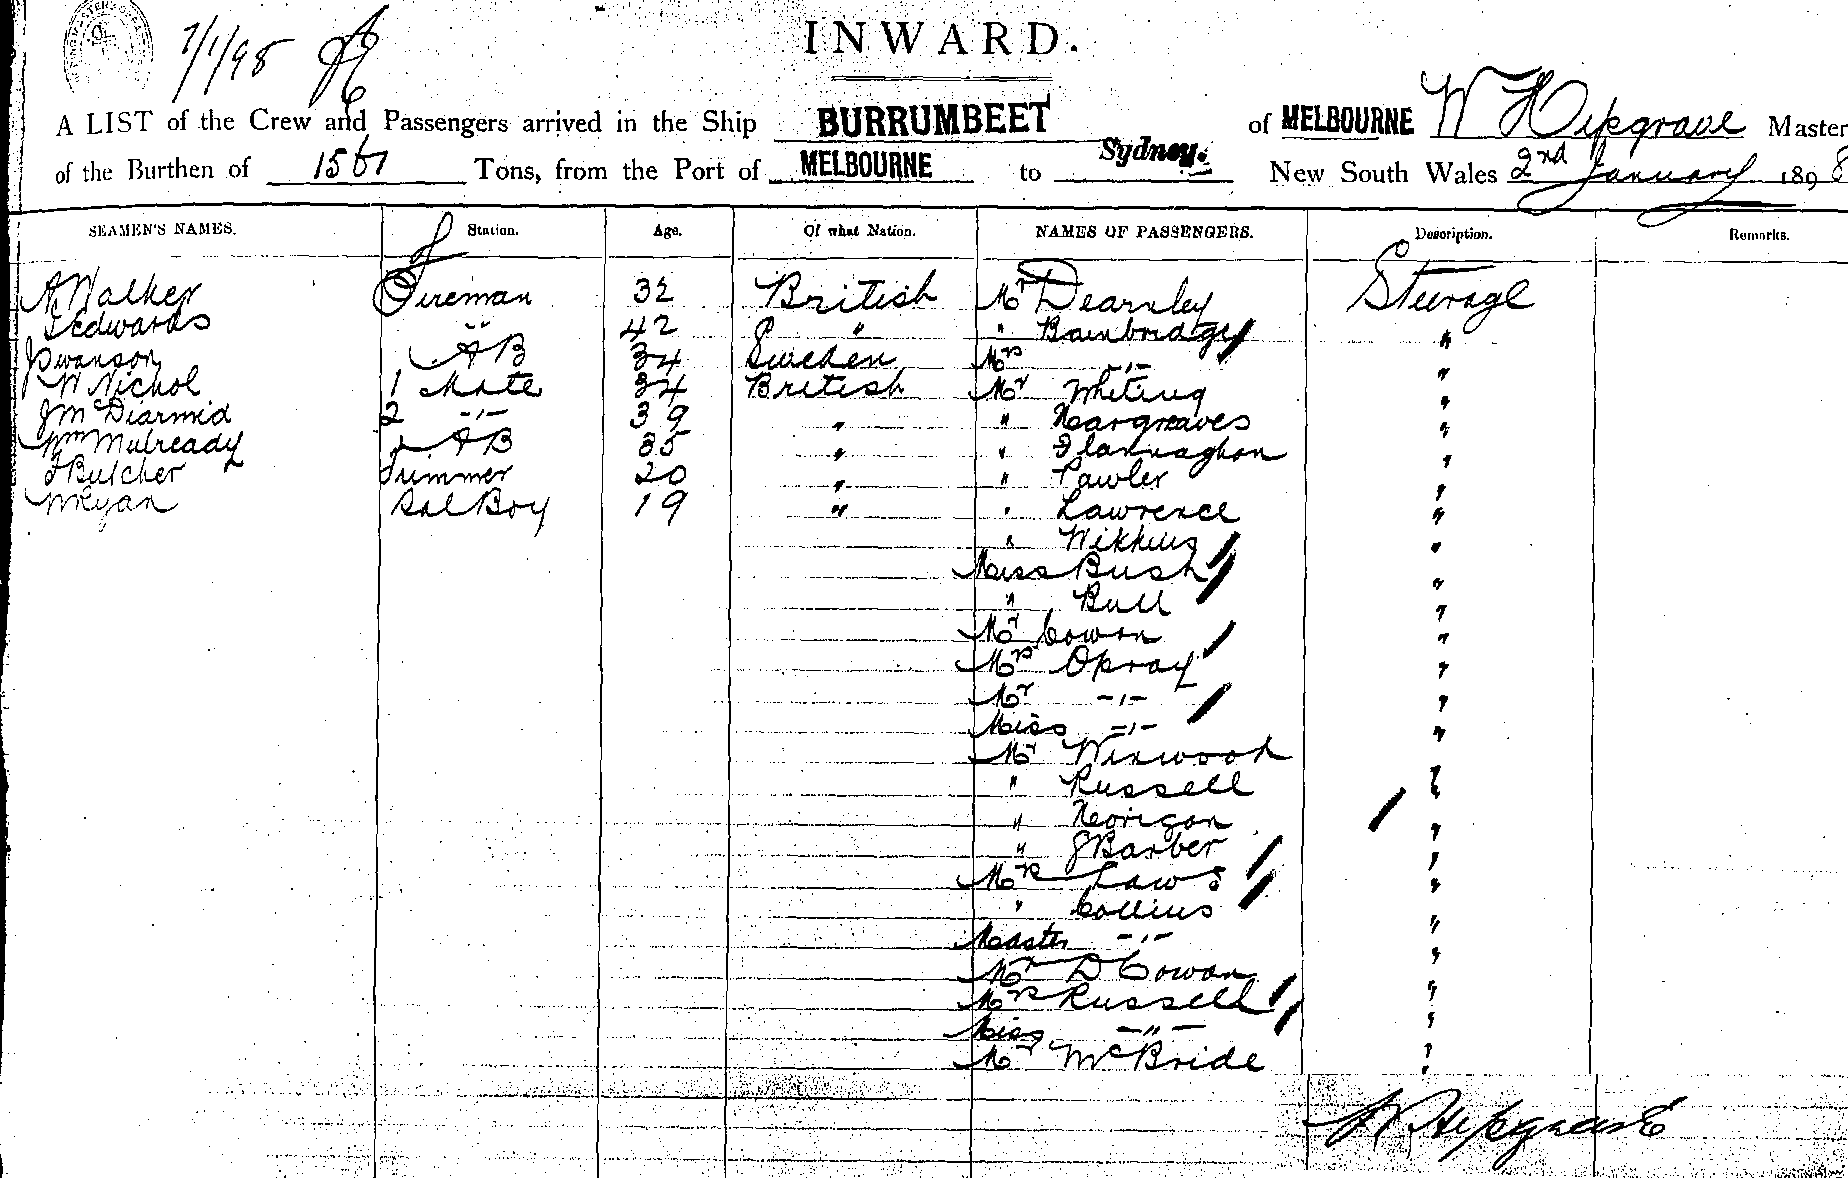 7/1/98
INWARD.
A LIST of the Crew and Passengers arrived in the Ship BURRUMBEET of MELBOURNE W Hipgrave Master
of the Burthen of 1561 Tons, from the Port of MELBOURNE to Sydney. New South Wales 2nd January 1898
SEAMEN'S NAMES. Station. Age. Of what Nation. NAMES OF PASSENGERS. Description. Remarks.
A Walker Fireman 32 British Mr Dearnley Steerage
Edwards " 42 " " Bainbridge "
J Swanson AB 34 Sweden Mrs -"- "
W Nichol 1 Mate 34 British Mr Whiting "
J McDiarmid 2 -"- 39 " " Hargreaves "
Wm Mulready AB 35 " " Flannaghan "
Butcher Trimmer 20 " " Pawler "
W Ryan Boy 19 " " Lawrence "
" "
Miss Bush "
" Bull "
Mr Cowan "
Mrs Opray "
Mr -"- "
Miss -"- "
Mr Winwood "
" Russell "
" Horigan "
" J Barber "
Mrs Laws "
" Collins "
Master -"- "
Mr D Cowan "
Mrs Russell "
Miss -"- "
Mr McBride "
W Hipgrave